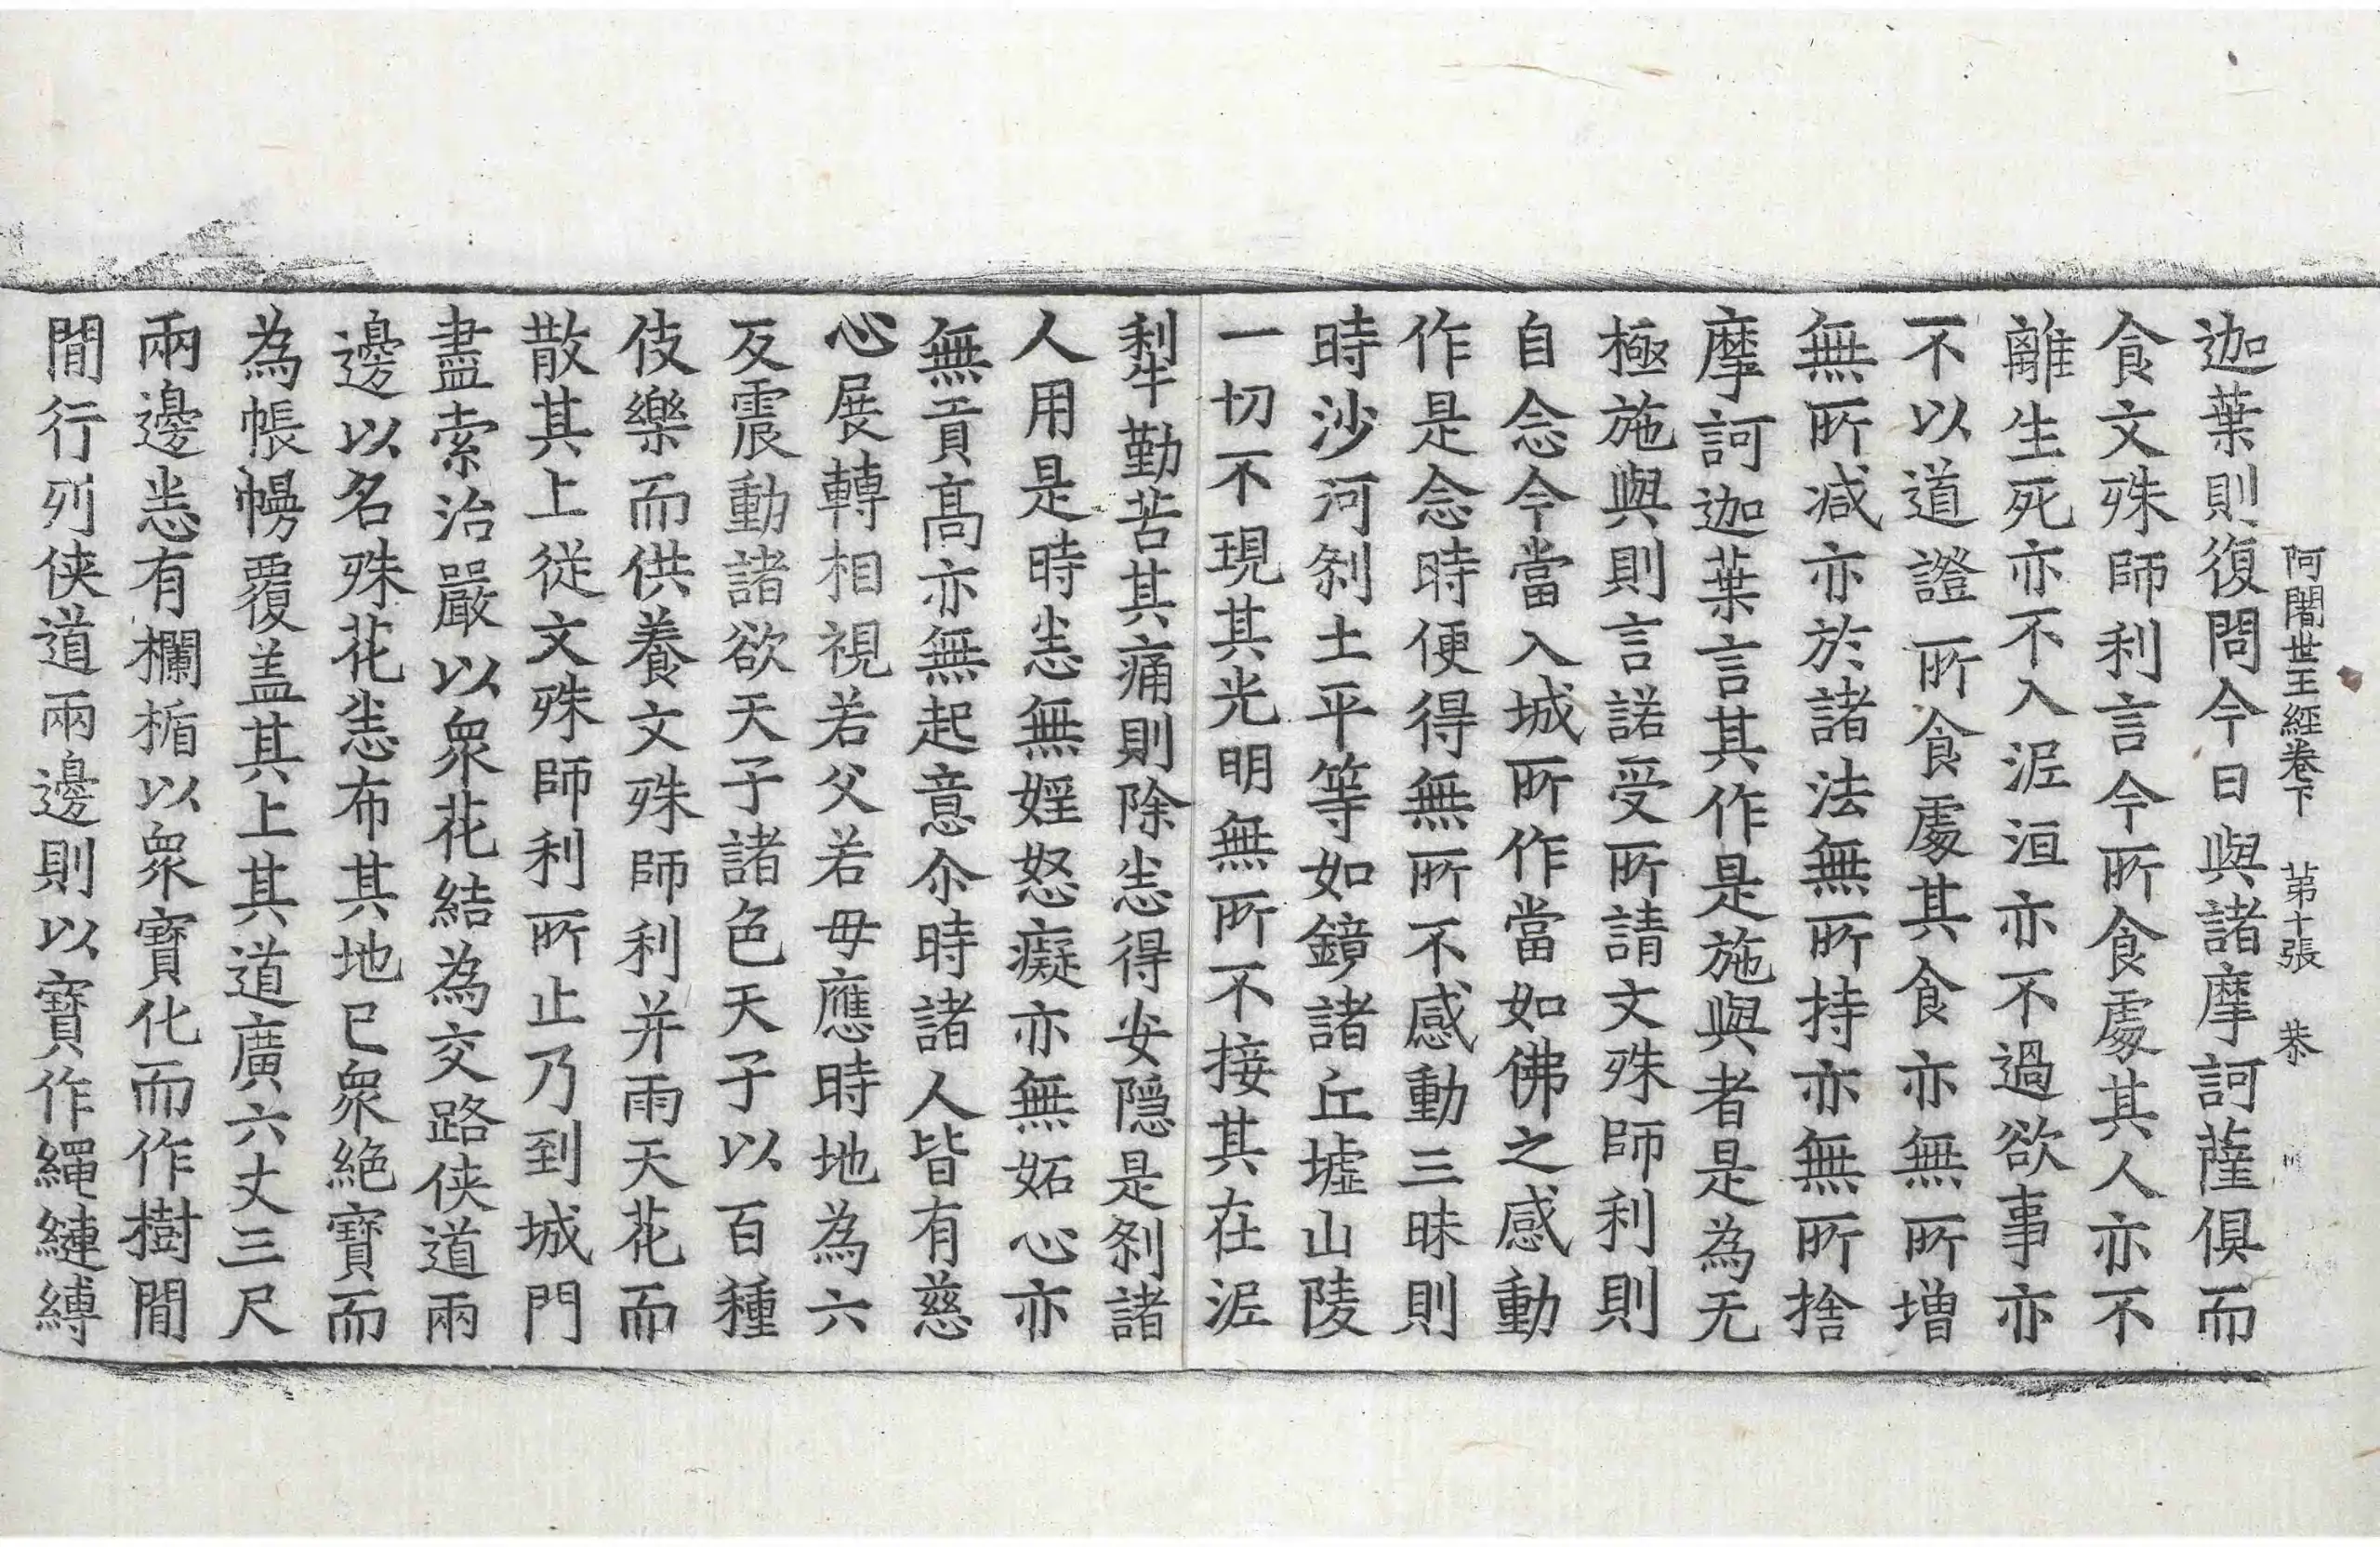 阿闍世王經卷下 第十張 恭
迦葉則復問今日與諸摩訶薩俱而
食文殊師利言今所食處其人亦不
離生死亦不入泥洹亦不過欲事亦
不以道證所食處其食亦無所増
無所減亦於諸法無所持亦無所捨
摩訶迦葉言其作是施與者是為无
極施與則言諾受所請文殊師利則
自念今當入城所作當如佛之感動
作是念時便得無所不感動三昧則
時沙河剎土平等如鏡諸丘墟山陵
一切不現其光明無所不接其在泥
犁勤苦其痛則除悉得安隱是剎諸
人用是時悉無婬怒癡亦無妬心亦
無貢高亦無起意尒時諸人皆有慈
心展轉相視若父若母應時地為六
反震動諸欲天子諸色天子以百種
伎樂而供養文殊師利并雨天花而
散其上從文殊師利所止乃到城門
盡索治嚴以衆花結為交路侠道兩
邊以名殊花悉布其地已衆絶寶而
為帳幔覆盖其上其道廣六丈三尺
兩邊悉有欄楯以衆寶化而作樹間
間行列侠道兩邊則以寶作繩縺縛